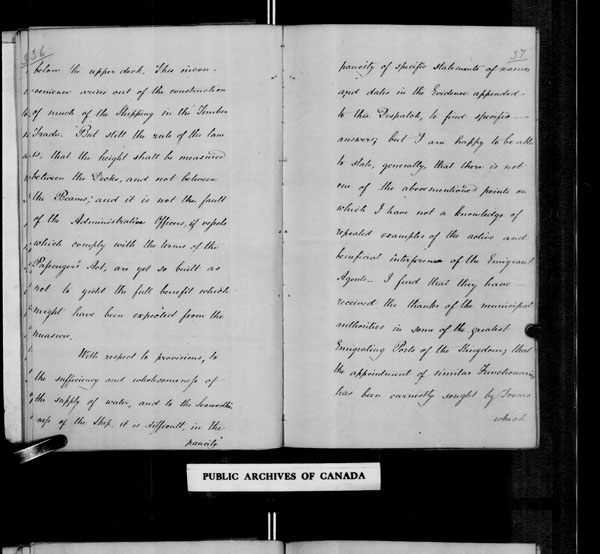 36
below the upper deck, This incon-
venience arises out of the construction
of much of the Shipping in the Timber
Trade. But still the rule of the law
is, that the height shall be measured
between the Decks, and not between
the Beams; and it is not the fault
of the Administrative Officers, if vessels
which comply with the terms of the
Passenger's Act, are yet so built as
not to yield the full benefit which
might have been expected from the
measure.
With respect to provisions, to
the sufficiency and wholesomeness of
the supply of water, and to the Seaworthi-
ness of the Ship, it is difficult, in the
paucity
37
paucity of specific statements of names
and dates in the Evidence appended
to this Despatch, to find specific
answers; but I am happy to be able
to state, generally, that there is not
one of the abovementioned points on
which I have not a knowledge of
repeated examples of the active and
beneficial interference of the Emigrant
Agents. I find that they have
received the thanks of the municipal
authorities in some of the greatest
Emigrating Ports of the Kingdom; that
the appointment of similar Functionaries
has been earnestly sought by Towns
which
PUBLIC ARCHIVES OF CANADA